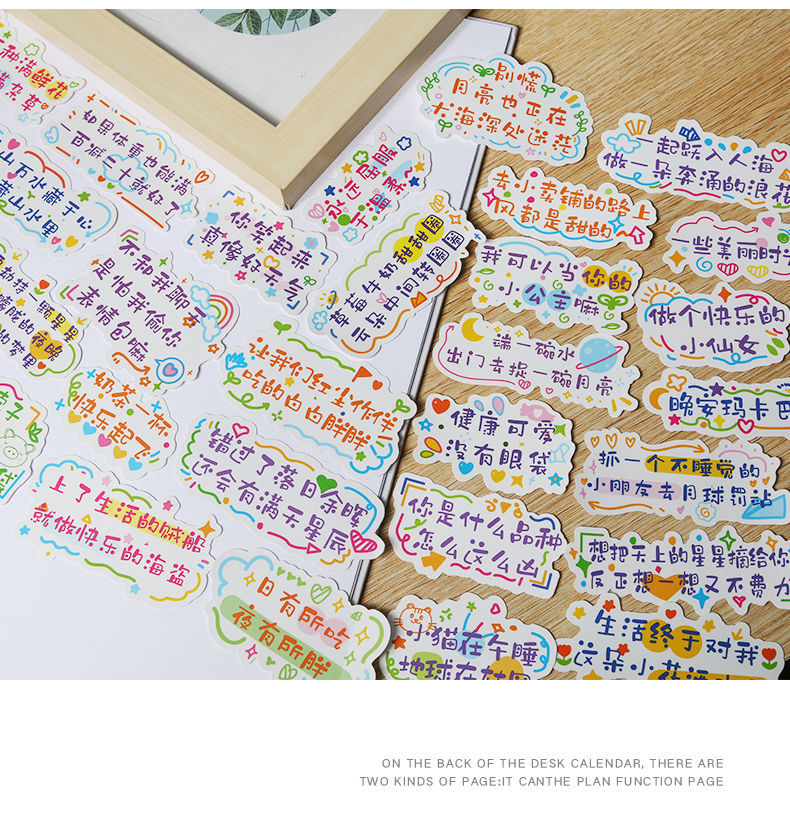 别慌
月亮也正在
大海深处迷茫
一起跃入人海
做一朵奔涌的浪花
去小卖铺的路上
风都是甜的
一些美丽时
我可以当你的
小公主嘛
做个快乐的
小仙女
端一碗水
出门去捉一碗月亮
晚安玛卡巴
健康可爱
没有眼袋
抓一个不睡觉的
小朋友去月球罚站
你是什么品种
怎么这么凶
想把天上的星星摘给你
反正想一想又不费力
小猫在午睡
地球在
生活终于对我
这朵小花
种满鲜花
杂草
如果体重也能满
一百减二十就好了
永远屈服
于温柔~
你笑起来
真像好天气
草莓牛奶甜甜圈
山万水藏于心
山水里
不和我聊天
是怕我偷你
表情包嘛
一颗星星
的夜晚
的梦里
让我们红尘作伴
吃的白白胖胖
奶茶一杯
快乐起飞
错过了落日余晖
还会有满天星辰
上了生活的贼船
就做快乐的海盗
日有所吃
夜有所胖
ON THE BACK OF THE DESK CALENDAR, THERE ARE
TWO KINDS OF PAGE:IT CANTHE PLAN FUNCTION PAGE